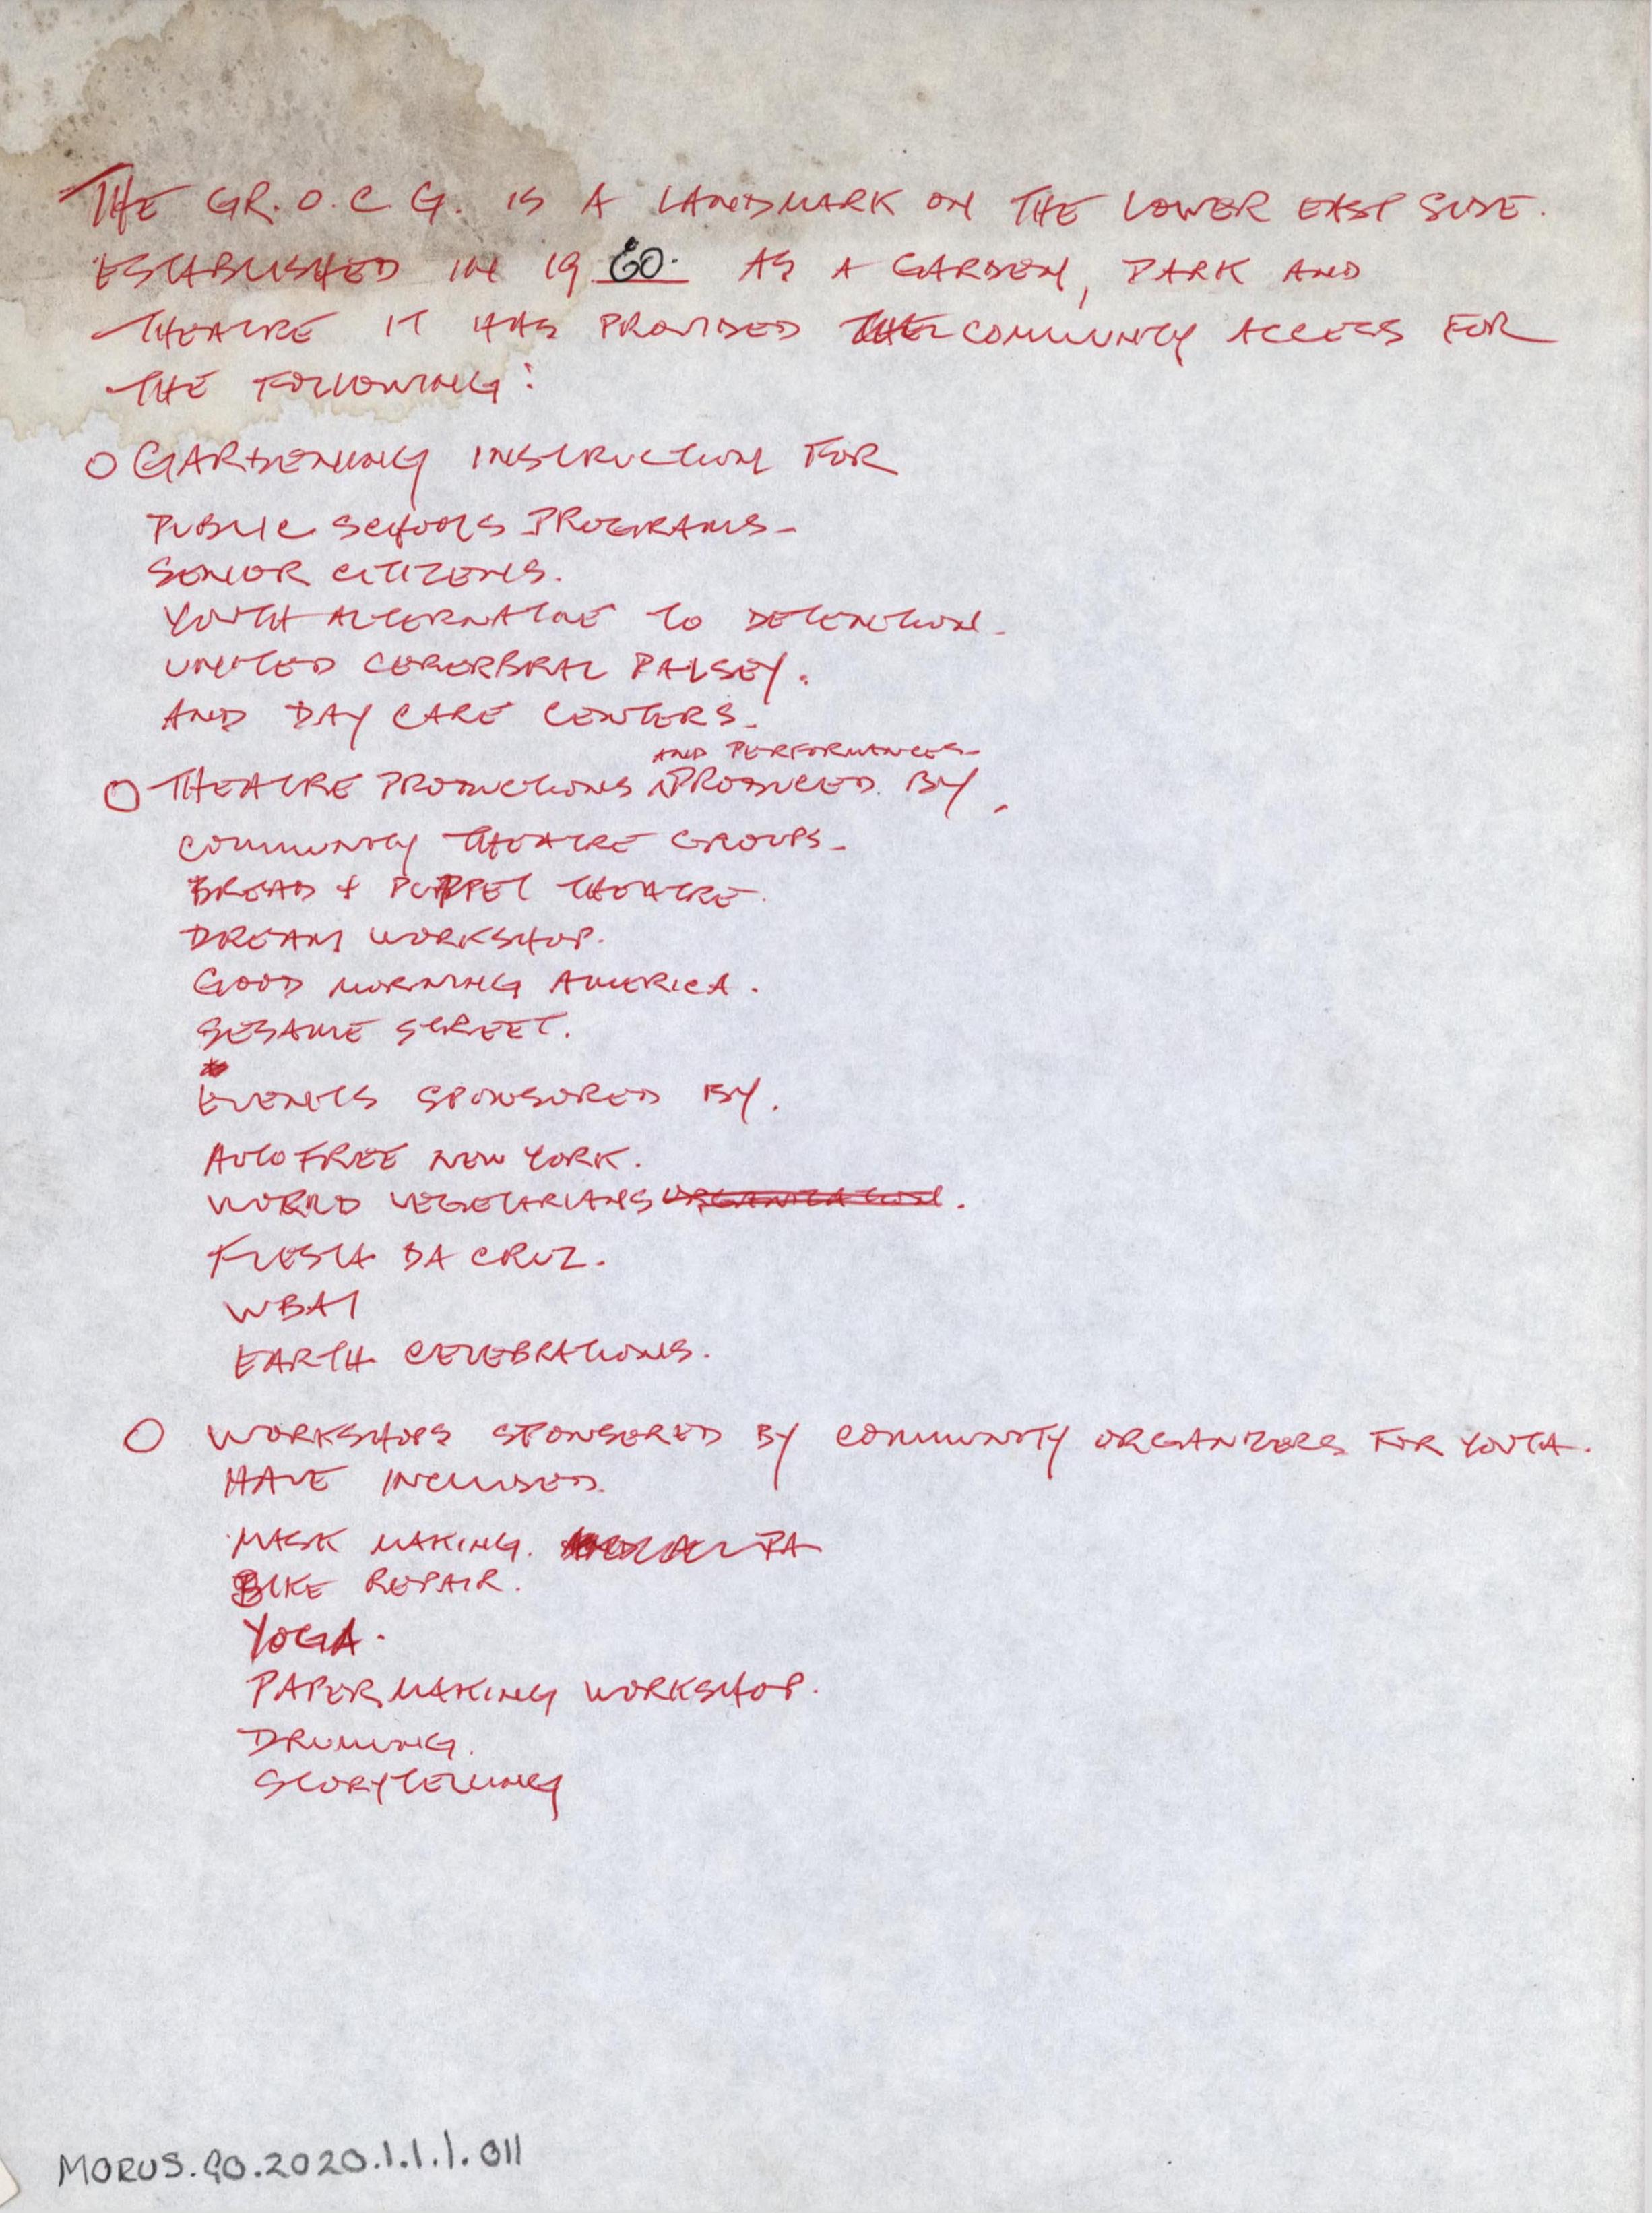 THE GR.O.C G. IS A LANDMARK ON THE LOWER EAST SIDE.
ESTABLISHED IN 19 60. AS A GARDEN, PARK AND
THEATRE IT HAS PROVIDED THE COMMUNITY ACCESS FOR
THE FOLLOWING:
O GARDENING INSTRUCTION FOR
PUBLIC SCHOOLS PROGRAMS-
SENIOR CITIZENS.
YOUTH ALTERNATIVE TO DETENTION-
UNITED CERERBRAL PALSEY.
AND DAY CARE CENTERS-
AND PERFORMANCES-
O THEATRE PRODUCTIONS PRODUCED BY,
COMMUNITY THEATRE GROUPS-
BREAD + PUPPET THEATRE.
DREAM WORKSHOP.
GOOD MORNING AMERICA.
SESAME STREET.
EVENTS SPONSORED BY.
AUTO FREE NEW YORK.
WORLD VEGETARIANS ORGANIZATION.
FIESTA DA CRUZ.
WBAI
EARTH CELEBRATIONS.
O WORKSHOPS SPONSERED BY COMMUNITY ORGANIZERS FOR YOUTH.
HAVE INCLUDED.
MASK MAKING.
BIKE REPAIR.
YOGA.
PAPER MAKING WORKSHOP.
DRUMING.
STORYTELLING
MORUS.GO.2020.1.1.1.011